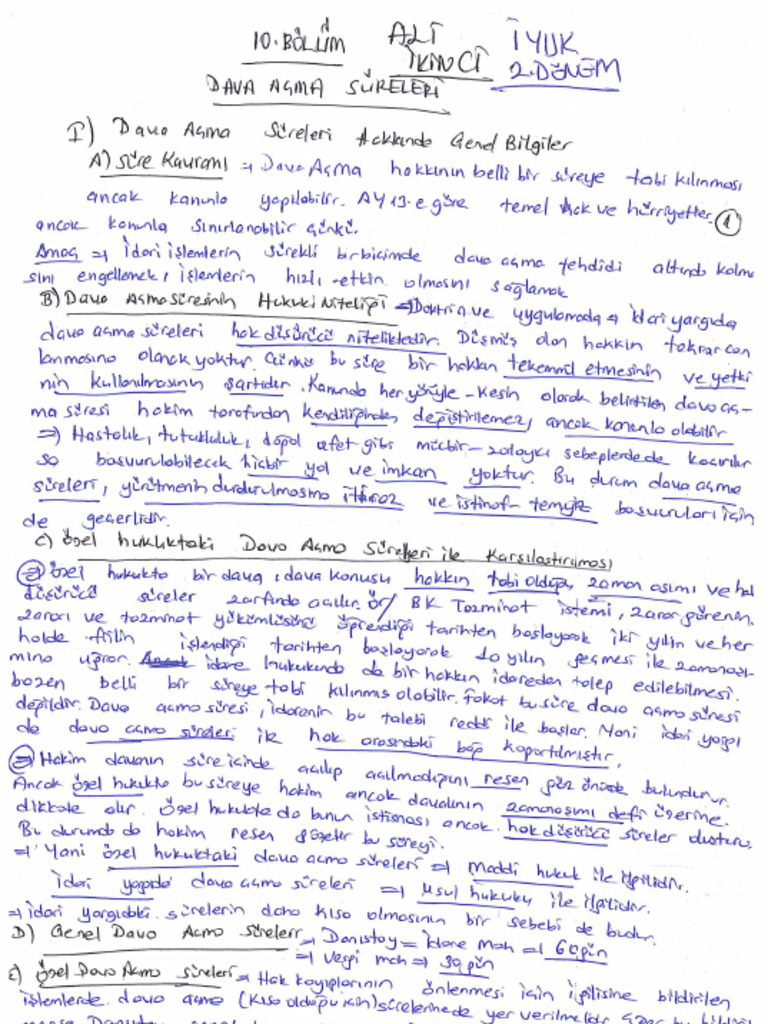 10. BÖLÜM ALİ İYUK
İKİNCİ 2. DÖNEM
DAVA AÇMA SÜRELERİ
I) Dava Açma Süreleri Hakkında Genel Bilgiler
A) Süre Kavramı → Dava Açma hakkının belli bir süreye tabi kılınması
ancak kanunla yapılabilir. AY 13-e göre temel hak ve hürriyetler 1
ancak kanunla sınırlanabilir çünkü.
Amaç → İdari işlemlerin sürekli bir biçimde dava açma tehdidi altında kalma
sını engellemek, işlemlerin hızlı-etkin olmasını sağlamak
B) Dava Açma Süresinin Hukuki Niteliği → Doktrin ve uygulamada → İdari yargıda
dava açma süreleri hak düşürücü niteliktedir. Düşmüş olan hakkın tekrar can
lanmasına olanak yoktur. Çünkü bu süre bir hakkın tekemmül etmesinin ve yetki
nin kullanılmasının şartıdır. Kanunda her yönüyle - kesin olarak belirtilen dava aç-
ma süresi hakim tarafından kendiliğinden değiştirilemez, ancak kanunla olabilir
⇒ Hastalık, tutukluluk, doğal afet gibi mücbir - zorlayıcı sebeplerde de kaçırılır
sa başvurulabilecek hiçbir yol ve imkan yoktur. Bu durum dava açma
süreleri, yürütmenin durdurulmasına itiraz ve istinaf - temyiz başvuruları için
de geçerlidir.
C) Özel hukuktaki Dava Açma Süreleri ile Karşılaştırılması
⇒ Özel hukukta bir dava, dava konusu hakkın tabi olduğu, zaman aşımı ve hak
düşürücü süreler zarfında açılır. Ör/ BK Tazminat istemi, zarar görenin,
zararı ve tazminat yükümlüsünü öğrendiği tarihten başlayarak iki yılın ve her
halde fiilin işlendiği tarihten başlayarak 10 yılın geçmesi ile zamanaşı-
mına uğrar. İdare hukukunda da bir hakkın idareden talep edilebilmesi
bazen belli bir süreye tabi kılınmış olabilir. Fakat bu süre dava açma süresi
değildir. Dava açma süresi, idarenin bu talebi reddi ile başlar. Yani idari yargı
da dava açma süreleri ile hak arasındaki bağ kopartılmıştır.
⇒ Hakim davanın süre içinde açılıp açılmadığını resen göz önünde bulundurur.
Ancak özel hukukta bu süreye hakim ancak davalının zamanaşımı defi üzerine
dikkate alır. Özel hukukta da bunun istisnası ancak hak düşürücü süreler
Bu durumda da hakim resen gözetir bu süreyi.
⇒ Yani özel hukuktaki dava açma süreleri ⇒ Maddi hukuk ile ilgilidir.
İdari yargıda dava açma süreleri ⇒ Usul hukuku ile ilgilidir.
⇒ İdari yargıdaki sürelerin daha kısa olmasının bir sebebi de budur.
D) Genel Dava Açma Süreleri → Danıştay = İdare mah ⇒ 60 gün
→ Vergi mah ⇒ 30 gün
E) Özel Dava Açma Süreleri → Hak kayıplarının önlenmesi için ilgilisine bildirilen
işlemlerde dava açma (kısa olduğu için) sürelerine de yer verilmelidir